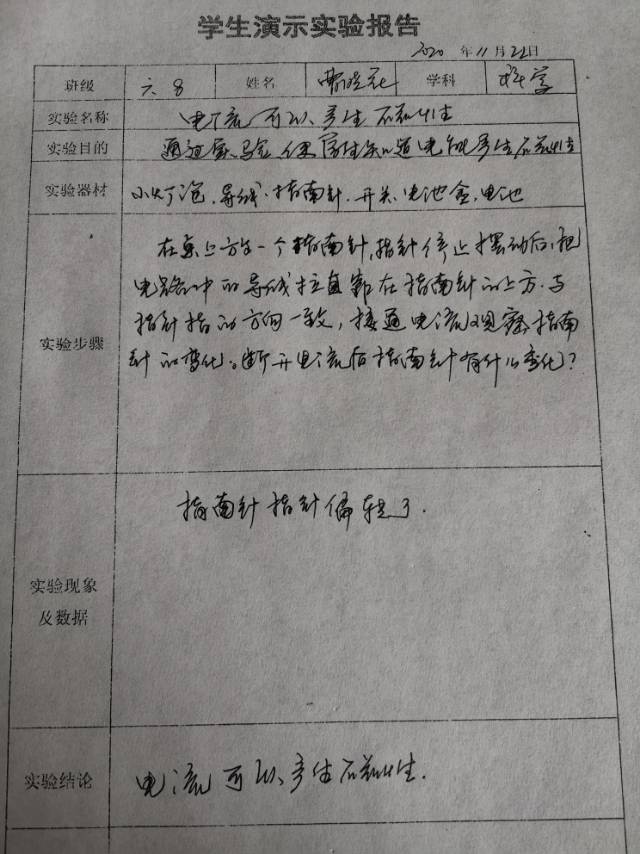 学生演示实验报告
2020 年 11 月 22日
班级 六 8 姓名 学科 科学
实验名称 电流可以产生磁性
实验目的 通过实验使学生知道电能产生磁性
实验器材 小灯泡、导线、指南针、开关、电池盒、电池
在桌上方放一个指南针,指针停止摆动后,把
电路中的导线拉直靠在指南针的上方.与
实验步骤 指针指的方向一致,接通电流观察指南
针的变化。断开电流后指南针有什么变化?
指南针指针偏转了.
实验现象
及数据
实验结论 电流可以产生磁性.